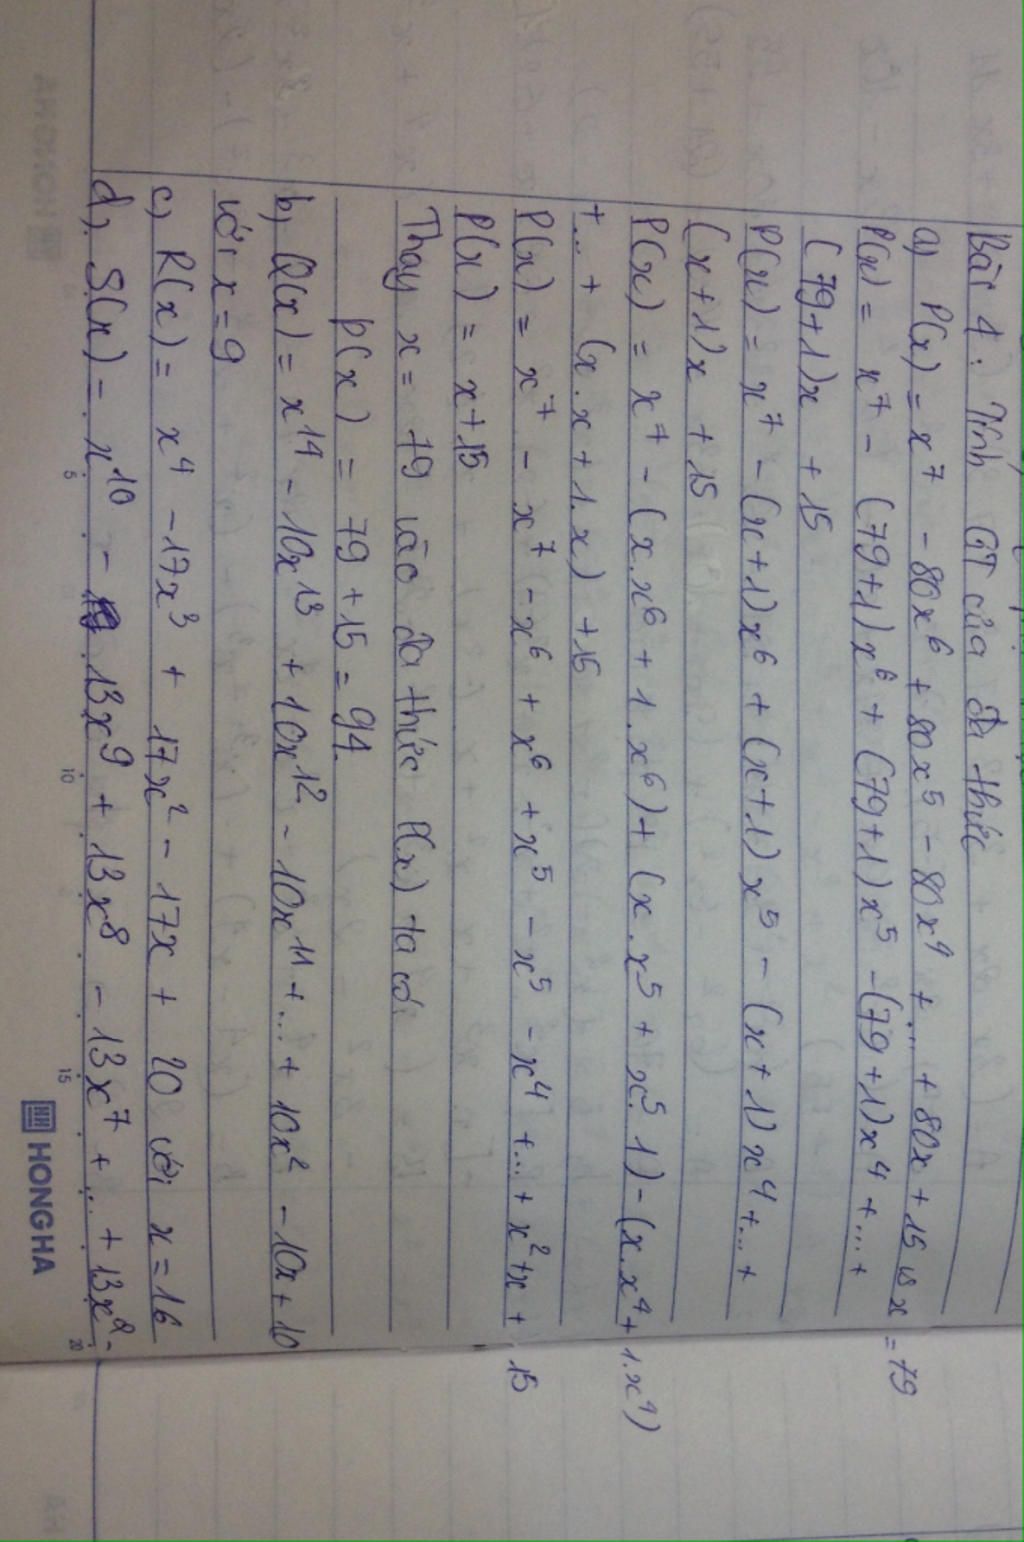 Bài 4: Tính GT của đa thức
a) P(x) = x⁷ - 80x⁶ + 80x⁵ - 80x⁴ + ... + 80x + 15 vs x = 79
P(x) = x⁷ - (79+1)x⁶ + (79+1)x⁵ - (79+1)x⁴ + ... +
(79+1)x + 15
P(x) = x⁷ - (x+1)x⁶ + (x+1)x⁵ - (x+1)x⁴ + ... +
(x+1)x + 15
P(x) = x⁷ - (x.x⁶ + 1.x⁶) + (x.x⁵ + x⁵.1) - (x.x⁴ + 1.x⁴)
+ ... + (x.x + 1.x) + 15
P(x) = x⁷ - x⁷ - x⁶ + x⁶ + x⁵ - x⁵ - x⁴ + ... + x² + x + 15
P(x) = x + 15
Thay x = 79 vào đa thức P(x) ta có
P(x) = 79 + 15 = 94.
b) Q(x) = x¹⁴ - 10x¹³ + 10x¹² - 10x¹¹ + ... + 10x² - 10x + 10
với x = 9
c) R(x) = x⁴ - 17x³ + 17x² - 17x + 20 với x = 16
d) S(x) = x¹⁰ - 13x⁹ + 13x⁸ - 13x⁷ + ... + 13x² -
5 10 15 20
HONG HA